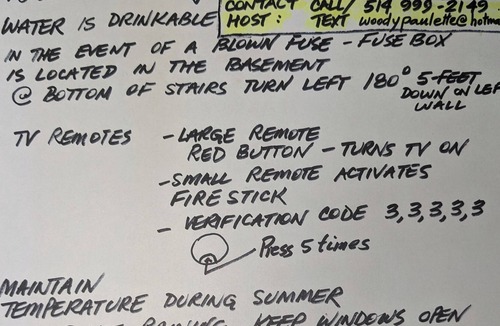 CONTACT CALL/ 514 999-2149
HOST: TEXT woodypaulette@hotma
WATER IS DRINKABLE
IN THE EVENT OF A BLOWN FUSE - FUSE BOX
IS LOCATED IN THE BASEMENT
@ BOTTOM OF STAIRS TURN LEFT 180° 5-FEET
DOWN ON LEF
WALL
TV REMOTES - LARGE REMOTE
RED BUTTON - TURNS TV ON
- SMALL REMOTE ACTIVATES
FIRESTICK
- VERIFICATION CODE 3,3,3,3,3
Press 5 times
MAINTAIN
TEMPERATURE DURING SUMMER
KEEP WINDOWS OPEN